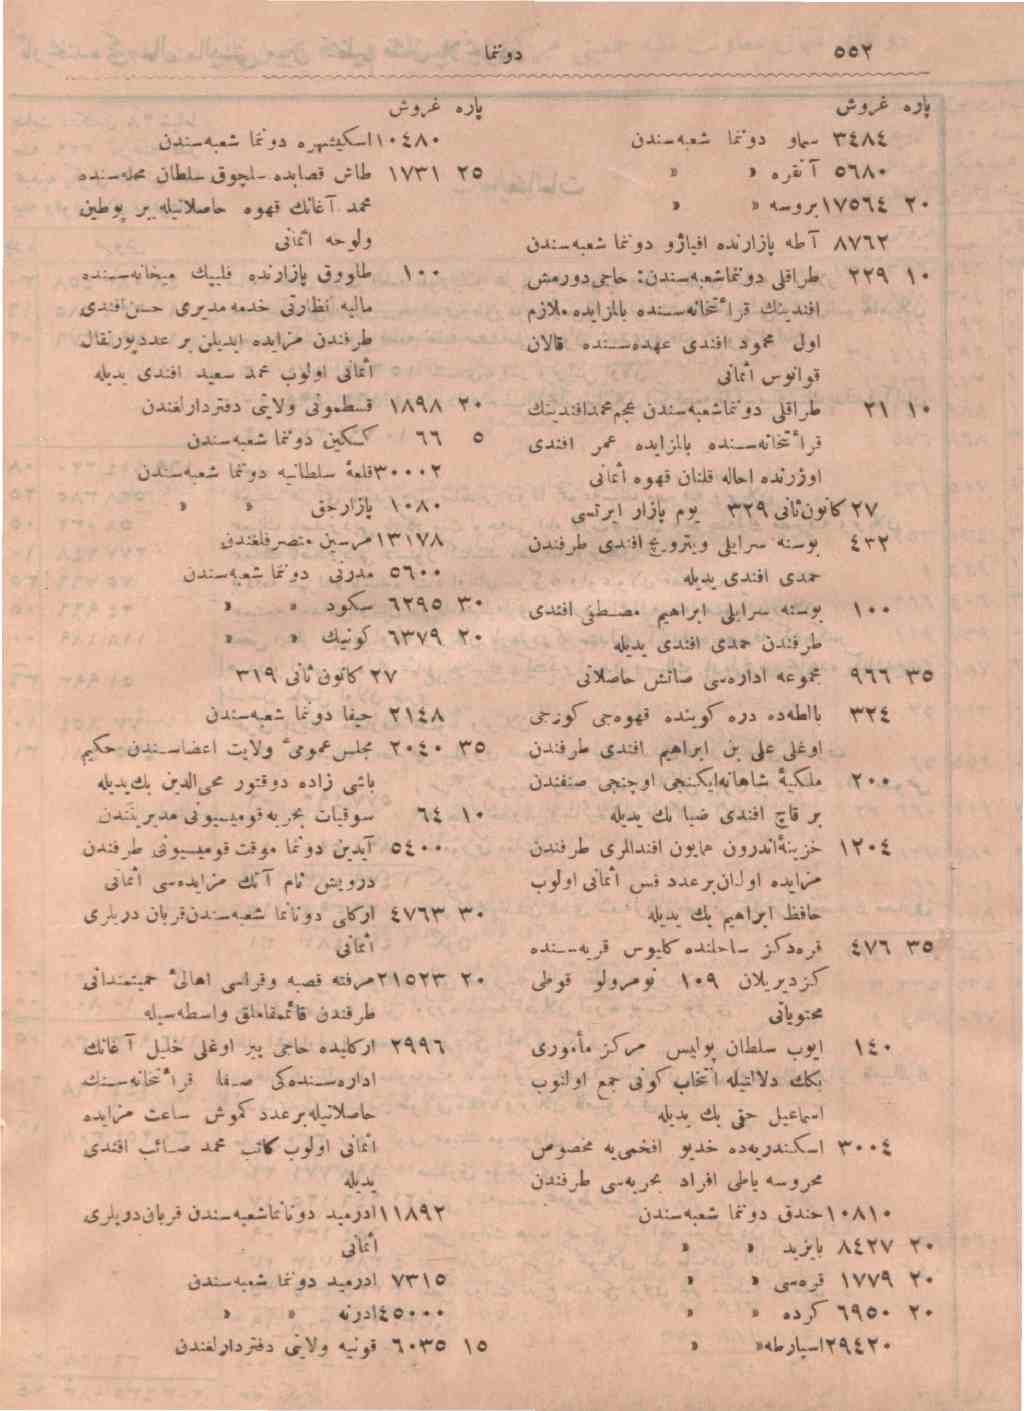 ٥٥٢
دوننما
پاره غروش
٣٤٨٤ سماو دوننما شعبه‌سندن
٥٦٨٠ آنقره » »
٢٠ ١٧٥٦٤ بروسه » »
٨٧٦٢ آطه پازارنده اقیازو دوننما شعبه‌سندن
١٠ ٢٢٩ طراقلی دوننما شعبه‌سندن: حاجی دورمش
افندینك قرائتخانه‌سنده بالمزایده ملازم
اول محمود افندی عهده‌سنده قالان
قوانوس اثمانی
١٠ ٢١ طراقلی دوننما شعبه‌سندن عجم محمد افندینك
قرائتخانه‌سنده بالمزایده عمر افندی
اوزرنده احاله قلنان قهوه اثمانی
٢٧ كانون ثانی ٣٢٩ یوم پازار ایرتسی
٤٣٢ بوسنه سرایلی ویترویچ افندی طرفندن
حمدی افندی یدیله
١٠٠ بوسنه سرایلی ابراهیم مصطفی افندی
طرفندن حمدی افندی یدیله
٣٥ ٩٦٦ مجموعه اداره‌سی صاتش حاصلاتی
٣٢٤ بالطه‌ده دره كوینده قهوه‌جی كوزجی
اوغلی علی بن ابراهیم افندی طرفندن
٢٠٠ ملكیهٔ شاهانه ایكنجی اوچنجی صنفندن
بر قاچ افندی ضیا بك یدیله
١٢٠٤ خزینهٔ اندرون همایون افندالری طرفندن
مزایده اولنان بر عدد فس اثمانی اولوب
حافظ ابراهیم بك یدیله
٣٥ ٤٧٦ قره‌دكز ساحلنده كلیوس قریه‌سنده
كزدیریلان ١٠٩ نومرولو قوطی
محتویاتی
١٤٠ ایوب سلطان پولیس مركز مأموری
بكك دلالتیله انتخاب كونی جمع اولنوب
اسماعیل حقی بك یدیله
٣٠٠٤ اسكندریه‌ده خدیو افخمی‌یه مخصوص
محروسه یاطی افراد بحریه‌سی طرفندن
١٠٨١٠ خندق دوننما شعبه‌سندن
٢٠ ٨٤٢٧ بایزید » »
٢٠ ١٧٧٩ قره‌سی » »
٢٠ ٦٩٥٠ كرده » »
٢٩٤٢٠ اسپارطه » »
پاره غروش
١٠٤٨٠ اسكیشهره دوننما شعبه‌سندن
٢٥ ١٧٣١ طاش قصابده سلچوق سلطان محله‌سنده
محمد آغانك قهوه حاصلاتیله بر پوطین
ولوحه اثمانی
١٠٠ طاووق پازارنده فلیپك میخانه‌سنده
مالیه نظارتی خدمه مدیری حسن افندی
طرفندن مزایده ایدیلن بر عدد پورتقال
اثمانی اولوب محمد سعید افندی یدیله
٢٠ ١٨٩٨ قسطمونی ولایتی دفتردارلغندن
٥ ٦٦ كسكین دوننما شعبه‌سندن
٣٠٠٠٢ قلعهٔ سلطانیه دوننما شعبه‌سندن
١٠٨٠ پازارجق » »
١٣١٧٨ مرسین متصرفلغندن
٥٦٠٠ مدرنی دوننما شعبه‌سندن
٣٠ ٦٢٩٥ سكود » »
٢٠ ٦٣٧٩ كونیك » »
٢٧ كانون ثانی ٣١٩
٢١٤٨ حیفا دوننما شعبه‌سندن
٣٥ ٢٠٤٠ مجلس عمومیٔ ولایت اعضاسندن حكیم
باشی زاده دوقتور محی‌الدین بك یدیله
١٠ ٦٤ سوقیات بحریه قومیسیونی مدیریتندن
٥٤٠٠ آیدین دوننما موقت قومیسیونی طرفندن
درویش نام آتك مزایده‌سی اثمانی
٣٠ ٤٧٦٣ اركلی دوناننما شعبه‌سندن قربان دریلری
اثمانی
٢٠ ٢١٥٢٣ مرفته قصبه وقراسی اهالیٔ حمیتمندانی
طرفندن قائممقاملق واسطه‌سیله
٢٩٩٦ اركلیده حاجی پیر اوغلی خلیل آغانك
اداره‌سنده‌كی صفا قرائتخانه‌سنك
حاصلاتیله بر عدد كموش ساعت مزایده
اثمانی اولوب كاتب محمد صائب افندی
یدیله
١١٨٩٢ ادرمید دوناننما شعبه‌سندن قربان دریلری
اثمانی
٧٣١٥ ادرمید دوننما شعبه‌سندن
٤٥٠٠٠ ادرنه » »
١٥ ٦٠٣٥ قونیه ولایتی دفتردارلغندن